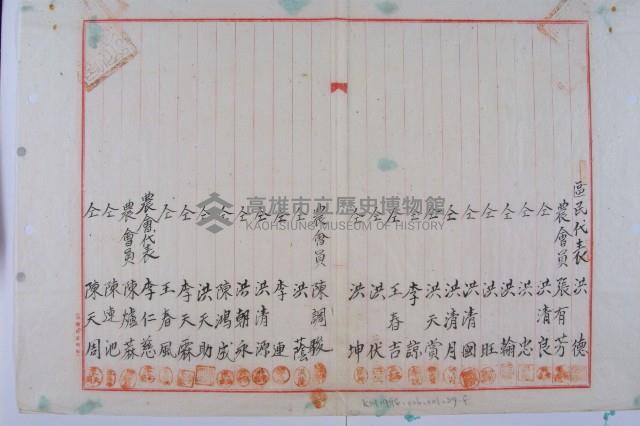 區民代表 洪德
農會員 張有芳
仝 洪清良
仝 洪忠
仝 洪輪
仝 洪旺
仝 洪清國
仝 洪清月
仝 洪天賞
仝 李諒
仝 王春吉
仝 洪伏
仝 洪坤
農會員 陳調駿
仝 洪蔭
仝 李連
仝 洪清源
仝 洪朝永
仝 陳鴻成
仝 洪天助
仝 李天霖
仝 王春風
農會代表 李仁慈
農會員 陳爐蔴
仝 陳連池
仝 陳天周
高雄市立歷史博物館
KAOHSIUNG MUSEUM OF HISTORY